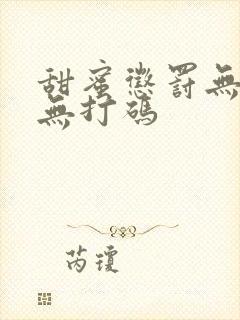 甜蜜懲罰無
無打碼
芮瓊